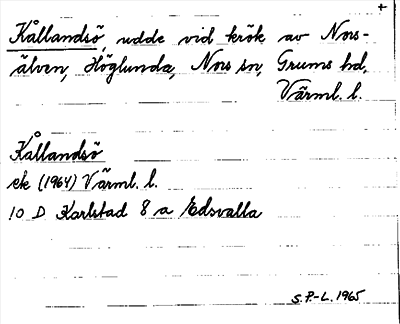 +
Kållandsö, udde vid krök av Nors-
älven, Höglunda, Nors sn, Grums hd,
Värml. l.
Kållandsö
ek (1964) Värml. l.
10 D Karlstad 8 a Edsvalla
S.P-L. 1965